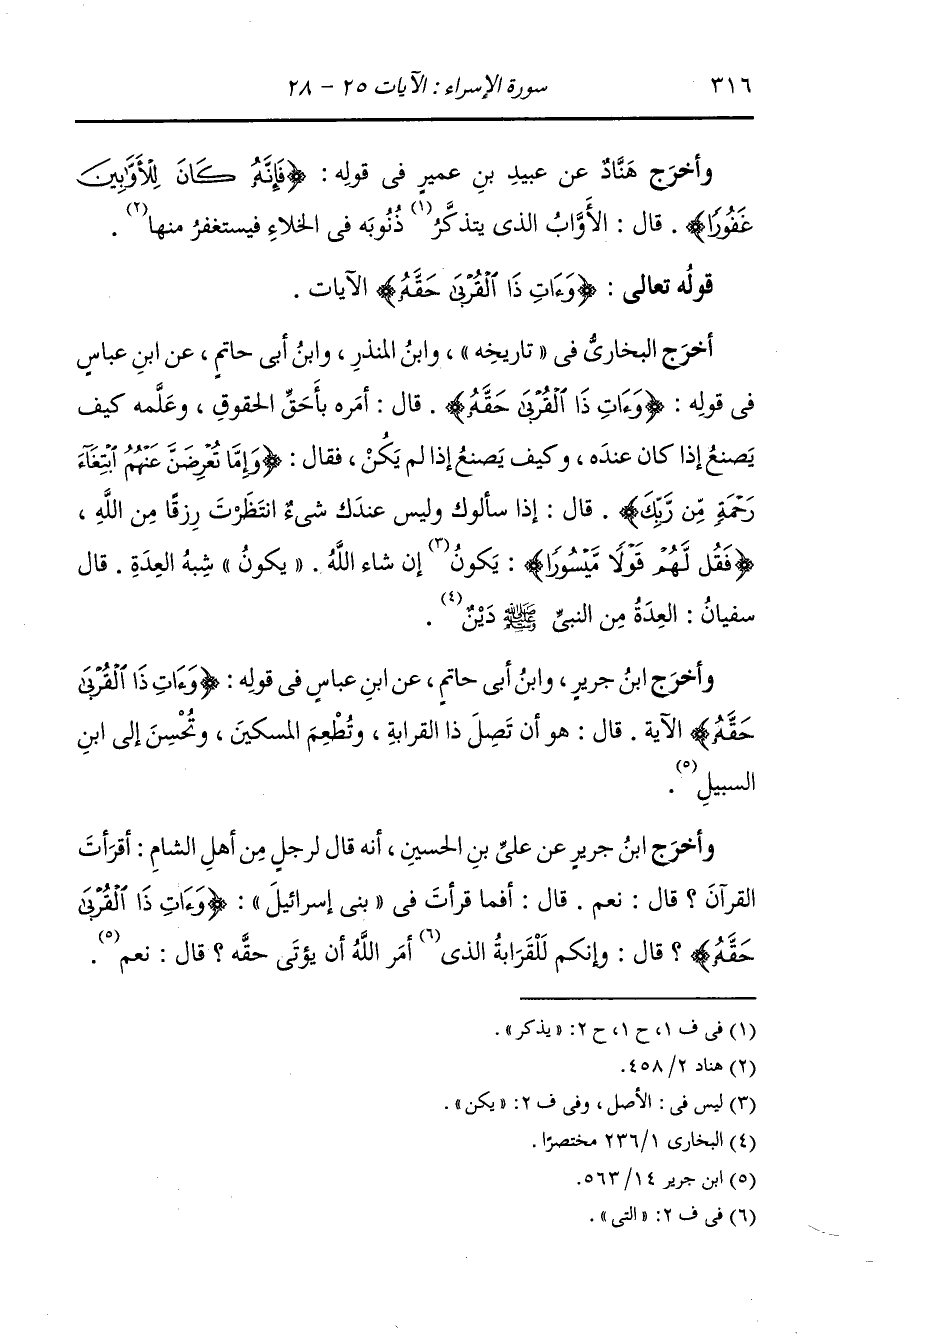 ٣١٦ سورة الإسراء : الآيات ٢٥ - ٢٨
وأخرَج هَنَّادٌ عن عبيدِ بنِ عميرٍ فى قولِه : ﴿فَإِنَّهُۥ كَانَ لِلْأَوَّٰبِينَ
غَفُورًا﴾ . قال : الأَوَّابُ الذى يتذكَّرُ(١) ذُنُوبَه فى الخلاءِ فيستغفرُ منها(٢) .
قولُه تعالى : ﴿وَءَاتِ ذَا ٱلْقُرْبَىٰ حَقَّهُۥ﴾ الآيات .
أخرَج البخارىُّ فى « تاريخِه » ، وابنُ المنذرِ ، وابنُ أبى حاتمٍ ، عن ابنِ عباسٍ
فى قولِه : ﴿وَءَاتِ ذَا ٱلْقُرْبَىٰ حَقَّهُۥ﴾ . قال : أمَره بأَحَقِّ الحقوقِ ، وعَلَّمه كيف
يَصنعُ إذا كان عندَه ، وكيف يَصنعُ إذا لم يَكُنْ ، فقال : ﴿وَإِمَّا تُعْرِضَنَّ عَنْهُمُ ٱبْتِغَآءَ
رَحْمَةٍ مِّن رَّبِّكَ﴾ . قال : إذا سألوك وليس عندَك شىءٌ انتَظَرْتَ رِزقًا مِن اللَّهِ ،
﴿فَقُل لَّهُمْ قَوْلًا مَّيْسُورًا﴾ : يَكونُ(٣) إن شاء اللَّهُ . « يكونُ » شِبهُ العِدَةِ . قال
سفيانُ : العِدَةُ مِن النبىِّ ﷺ دَيْنٌ(٤) .
وأخرَج ابنُ جريرٍ ، وابنُ أبى حاتمٍ ، عن ابنِ عباسٍ فى قولِه : ﴿وَءَاتِ ذَا ٱلْقُرْبَىٰ
حَقَّهُۥ﴾ الآية . قال : هو أن تَصِلَ ذا القرابةِ ، وتُطْعِمَ المسكينَ ، وتُحْسِنَ إلى ابنِ
السبيلِ(٥) .
وأخرَج ابنُ جريرٍ عن علىِّ بنِ الحسينِ ، أنه قال لرجلٍ مِن أهلِ الشامِ : أقرَأتَ
القرآنَ ؟ قال : نعم . قال : أفما قرأتَ فى « بنى إسرائيلَ » : ﴿وَءَاتِ ذَا ٱلْقُرْبَىٰ
حَقَّهُۥ﴾ ؟ قال : وإنكم لَلْقَرَابةُ الذى(٦) أمَر اللَّهُ أن يؤتَى حقُّه ؟ قال : نعم(٥) .
(١) فى ف ١، ح ١، ح ٢: « يذكر » .
(٢) هناد ٢/ ٤٥٨.
(٣) ليس فى : الأصل ، وفى ف ٢: « يكن » .
(٤) البخارى ١/ ٢٣٦ مختصرًا .
(٥) ابن جرير ١٤/ ٥٦٣.
(٦) فى ف ٢: « التى » .